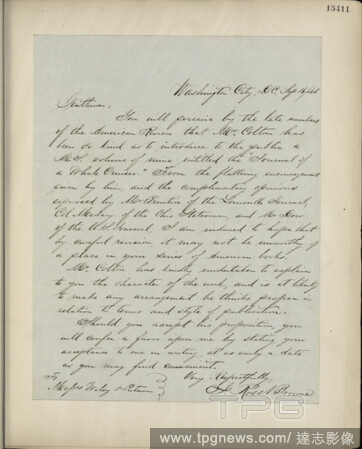 15411
Washington City, D.C. Sept
Gentlemen,
You will perceive by the late numbers
of the American Review that Mr. Colton has
been so kind as to introduce to the public a
M.S. volume of mine, entitled the "Journal of
a Whale Cruiser." From the flattering encouragement
given by him, and the complimentary opinions
expressed by Mr. Prentice of the Louisville Journal,
Col. Medary of the Ohio Statesman, and Mr.
of the U.S. Journal, I am induced to hope that
by careful revision it may not be unworthy of
a place in your series of American books.
Mr. Colton has kindly undertaken to explain
to you the character of the work, and is at liberty
to make any arrangement he thinks proper in
relation to terms and style of publication.
Should you accept this proposition, you
will confer a favor upon me by stating your
acceptance to me in writing, at as early a date
as you may find convenient.
Very Respectfully,
J. Ross Browne
To
Messrs Wiley & Putnam
TPG
www.tpgnews.com/ 達志影像